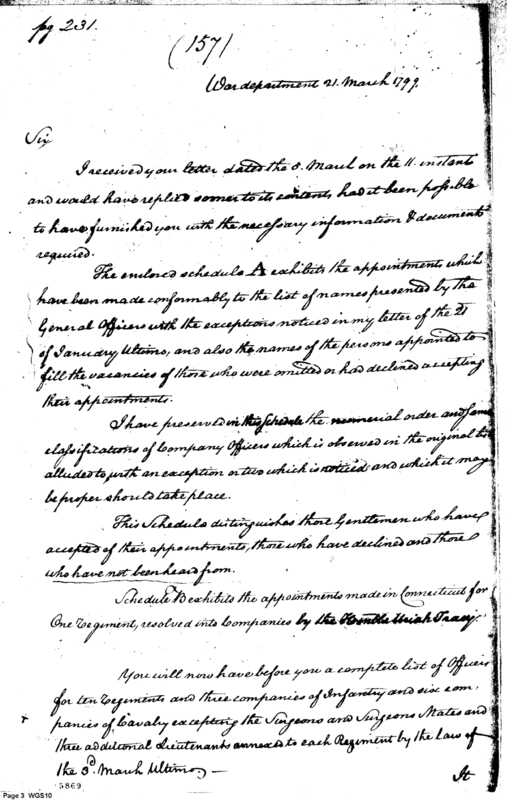 pg 231.
(157)
War department 21. March 1799.
Sir
I received your letter dated the 8. March on the 11. instant
and would have replied sooner to its contents had it been possible
to have furnished you with the necessary information & documents
required.
The enclosed schedule A exhibits the appointments which
have been made conformably to the list of names presented by the
General Officers with the exceptions noticed in my letter of the 21
of January Ultimo, and also the names of the persons appointed to
fill the vacancies of those who were omitted or had declined accepting
their appointments.
I have preserved in this Schedule the numerial order and same
classifications of Company Officers which is observed in the original list
alluded to, with an exception or two which is noticed and which it may
be proper should take place.
This Schedule distinguishes those Gentlemen who have
accepted of their appointments, those who have declined and those
who have not been heard from.
Schedule B exhibits the appointments made in Connecticut for
One Regiment, resolved into Companies by the Honble Uriah Tracy.
You will now have before you a complete list of Officers
for ten Regiments and three companies of Infantry and six com-
panies of Cavalry excepting the Surgeons and Surgeons Mates and
three additional Lieutenants annexed to each Regiment by the Law of
the 3d. March Ultimo, —
It
5869
Page 3 WGS10